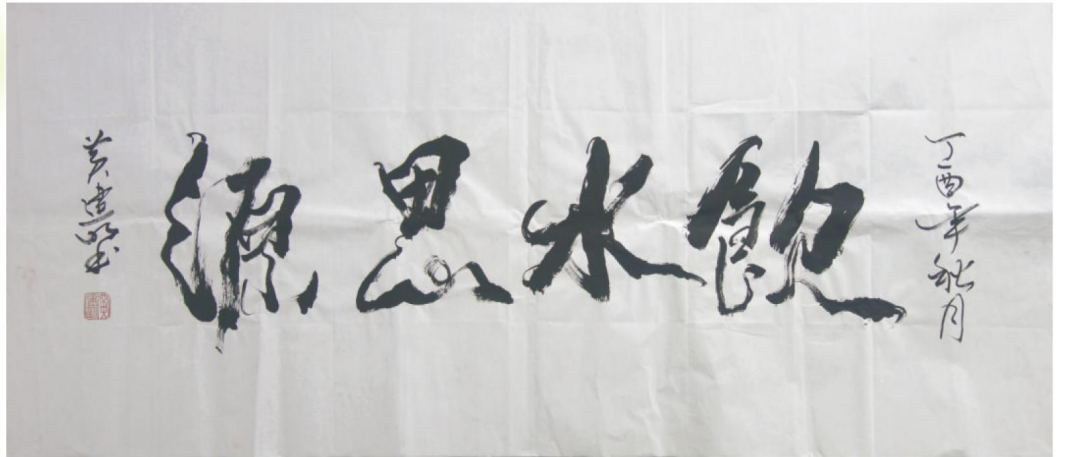 丁酉年秋月
飲水思源
黄建